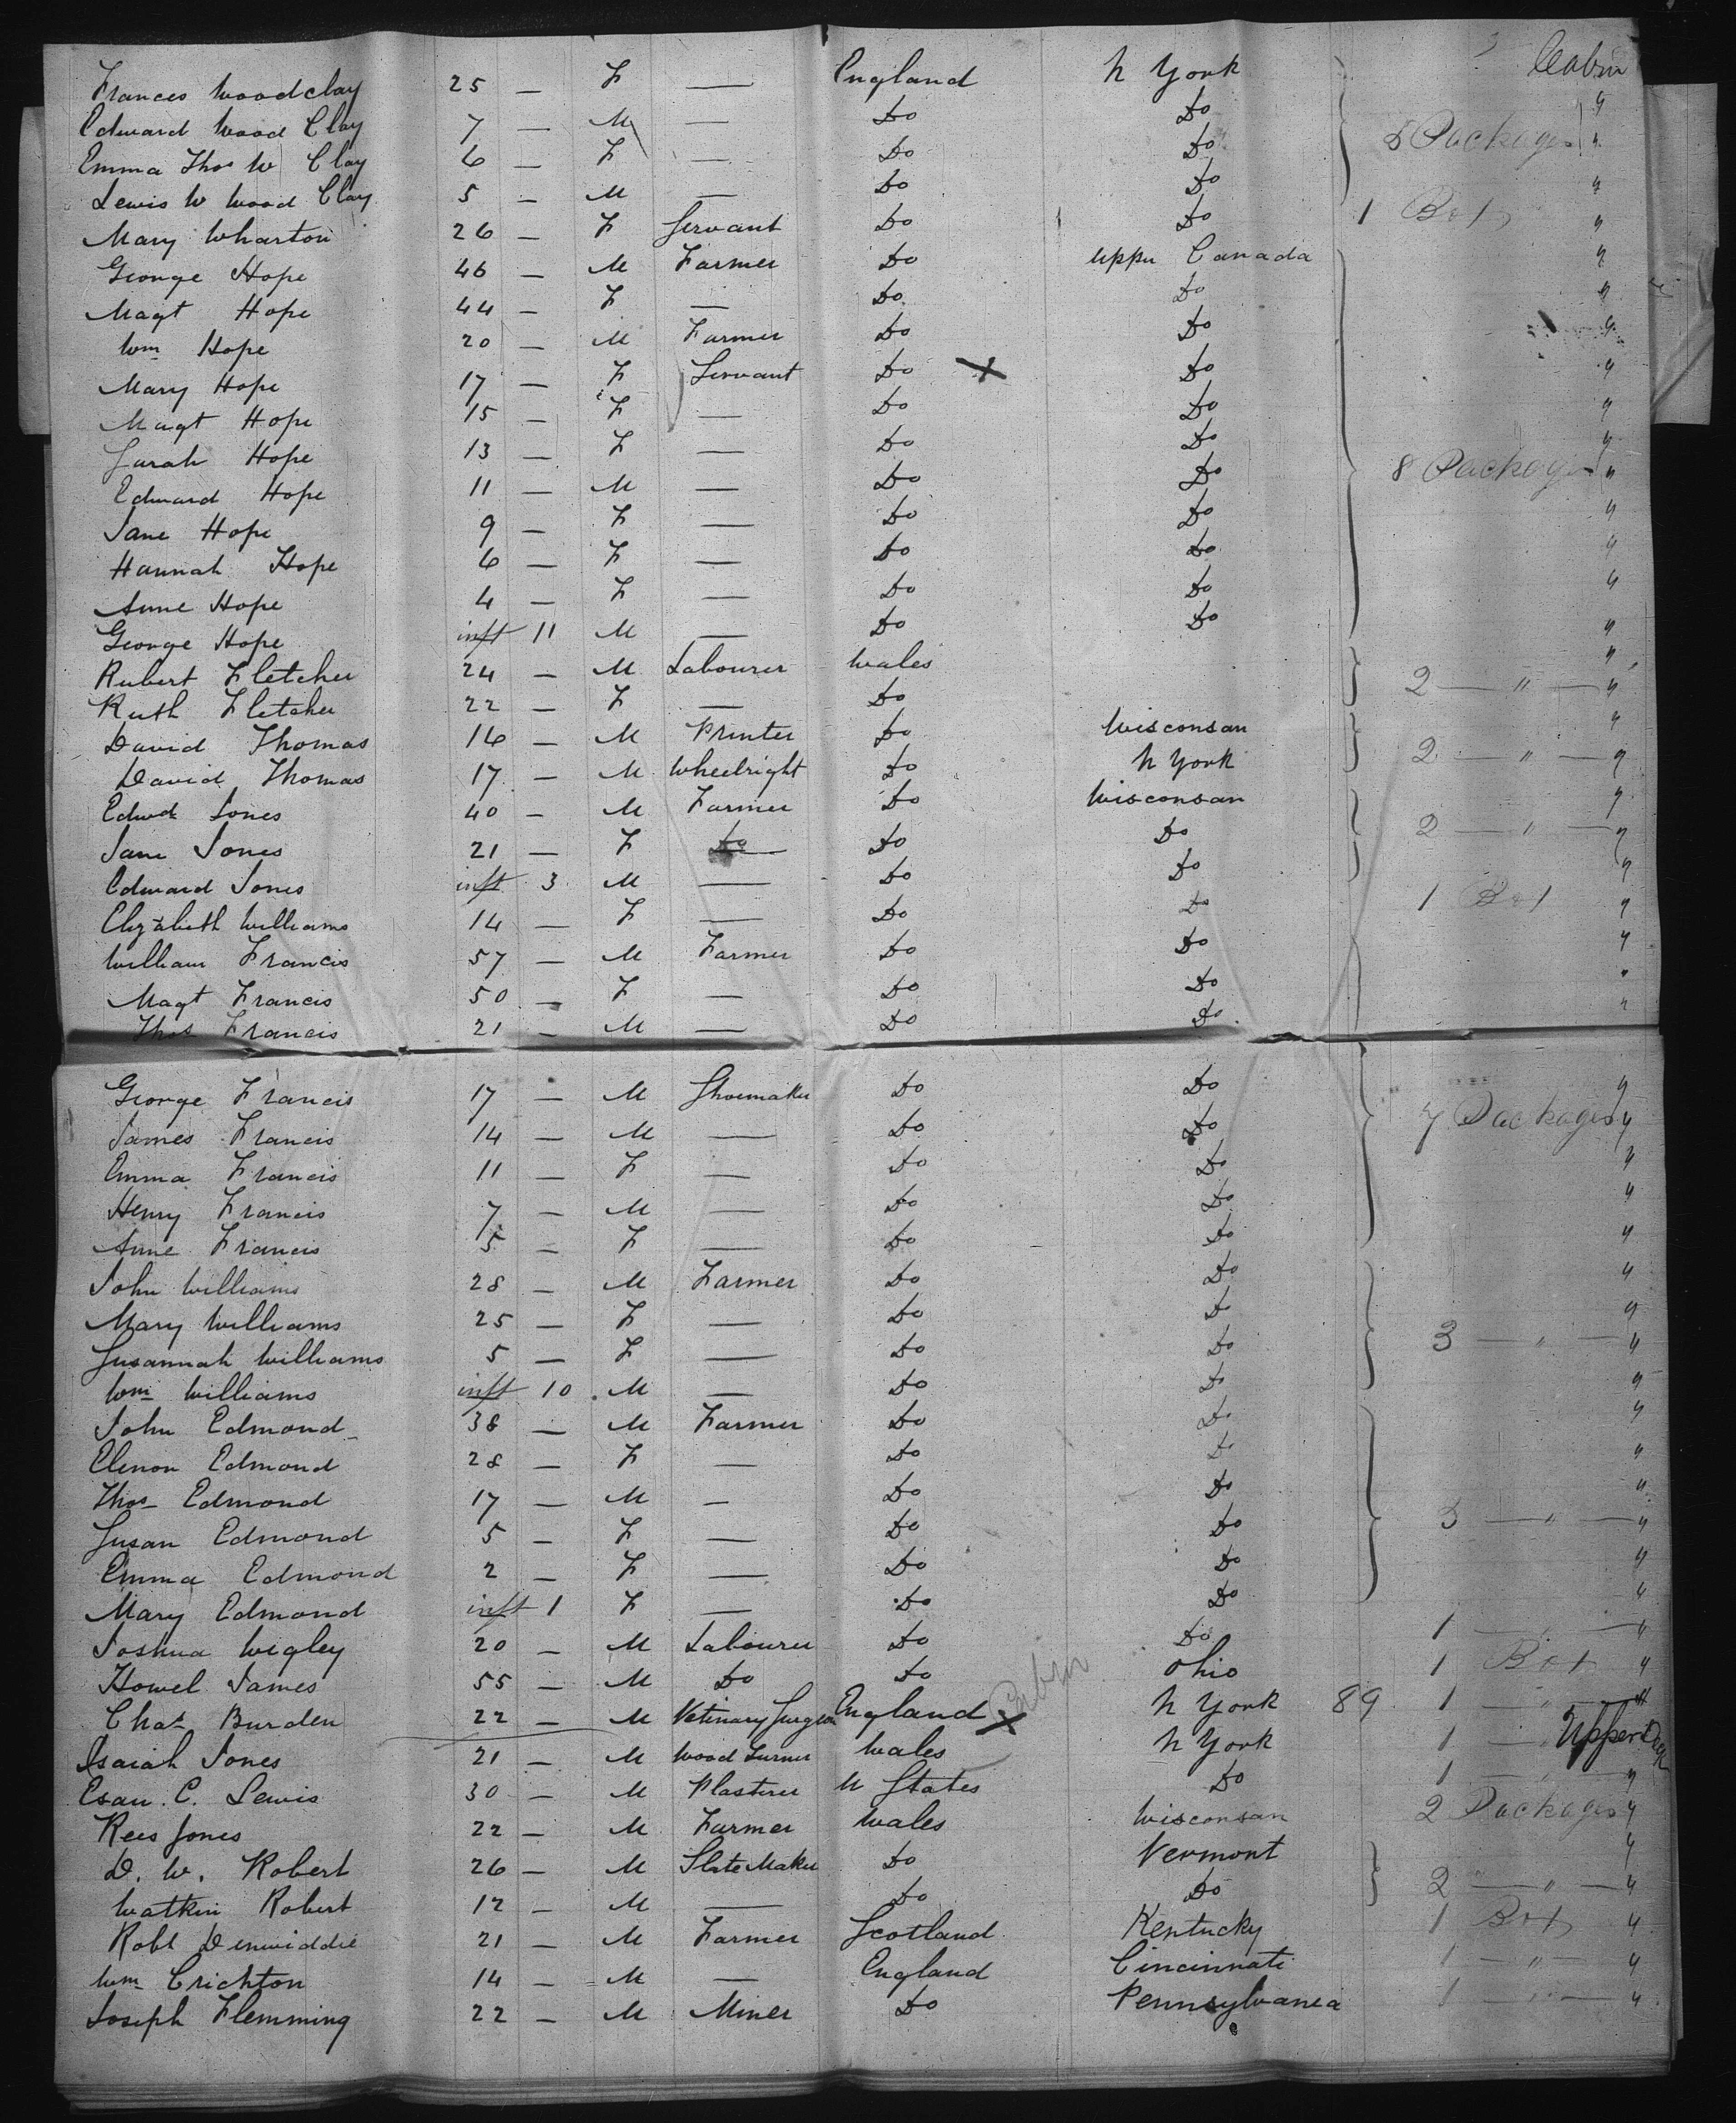 Frances Woodclay 25 — F — England N York Cabin
Edward Wood Clay 7 — M — Do Do "
Emma Thos W Clay 6 — F — Do Do 5 Packages "
Lewis W Wood Clay 5 — M — Do Do "
Mary Wharton 26 — F Servant Do Do 1 Box "
George Hope 46 — M Farmer Do Upper Canada "
Magt Hope 44 — F — Do Do "
Wm Hope 20 — M Farmer Do Do "
Mary Hope 17 — F Servant Do X Do "
Magt Hope 15 — F — Do Do "
Sarah Hope 13 — F — Do Do "
Edward Hope 11 — M — Do Do 8 Packages "
Jane Hope 9 — F — Do Do "
Hannah Hope 6 — F — Do Do "
Anne Hope 4 — F — Do Do "
George Hope inft 11 M — Do Do "
Robert Fletcher 24 — M Labourer Wales "
Ruth Fletcher 22 — F — Do 2 — " — "
David Thomas 16 — M Printer Do Wisconsan "
David Thomas 17 — M Wheelright Do N York 2 — " — "
Edwd Jones 40 — M Farmer Do Wisconsan "
Jane Jones 21 — F Do Do Do 2 — " — "
Edward Jones inft 3 M — Do Do "
Elizabeth Williams 14 — F — Do Do 1 Box "
William Francis 57 — M Farmer Do Do "
Magt Francis 50 — F — Do Do "
Thos Francis 21 — M — Do Do "
George Francis 17 — M Shoemaker Do Do "
James Francis 14 — M — Do Do 7 Packages "
Emma Francis 11 — F — Do Do "
Henry Francis 7 — M — Do Do "
Anne Francis 5 — F — Do Do "
John Williams 28 — M Farmer Do Do "
Mary Williams 25 — F — Do Do "
Susannah Williams 5 — F — Do Do 3 — " — "
Wm Williams inft 10 M — Do Do "
John Edmond 38 — M Farmer Do Do "
Elenor Edmond 28 — F — Do Do "
Thos Edmond 17 — M — Do Do "
Susan Edmond 5 — F — Do Do 3 — " — "
Emma Edmond 2 — F — Do Do "
Mary Edmond inft 1 F — Do Do "
Joshua Wigley 20 — M Labourer Do Do 1 — " — "
Howel James 55 — M Do Do Ohio 1 Box "
Chas Burden 22 — M Vetinary Surgeon England X Cabin N York 89 1 — " — "
Isaiah Jones 21 — M Wood Turner Wales N York 1 — " Upper Deck
Esau C. Lewis 30 — M Plasterer U States Do 1 — " — "
Rees Jones 22 — M Farmer Wales Wisconsan 2 Packages "
D. W. Robert 26 — M Slate Maker Do Vermont "
Watkin Robert 12 — M — Do Do 2 — " — "
Robt Denwiddie 21 — M Farmer Scotland Kentucky 1 Box "
Wm Crichton 14 — M — England Cincinnati 1 — " — "
Joseph Flemming 22 — M Miner Do Pennsylvanea 1 — " — "